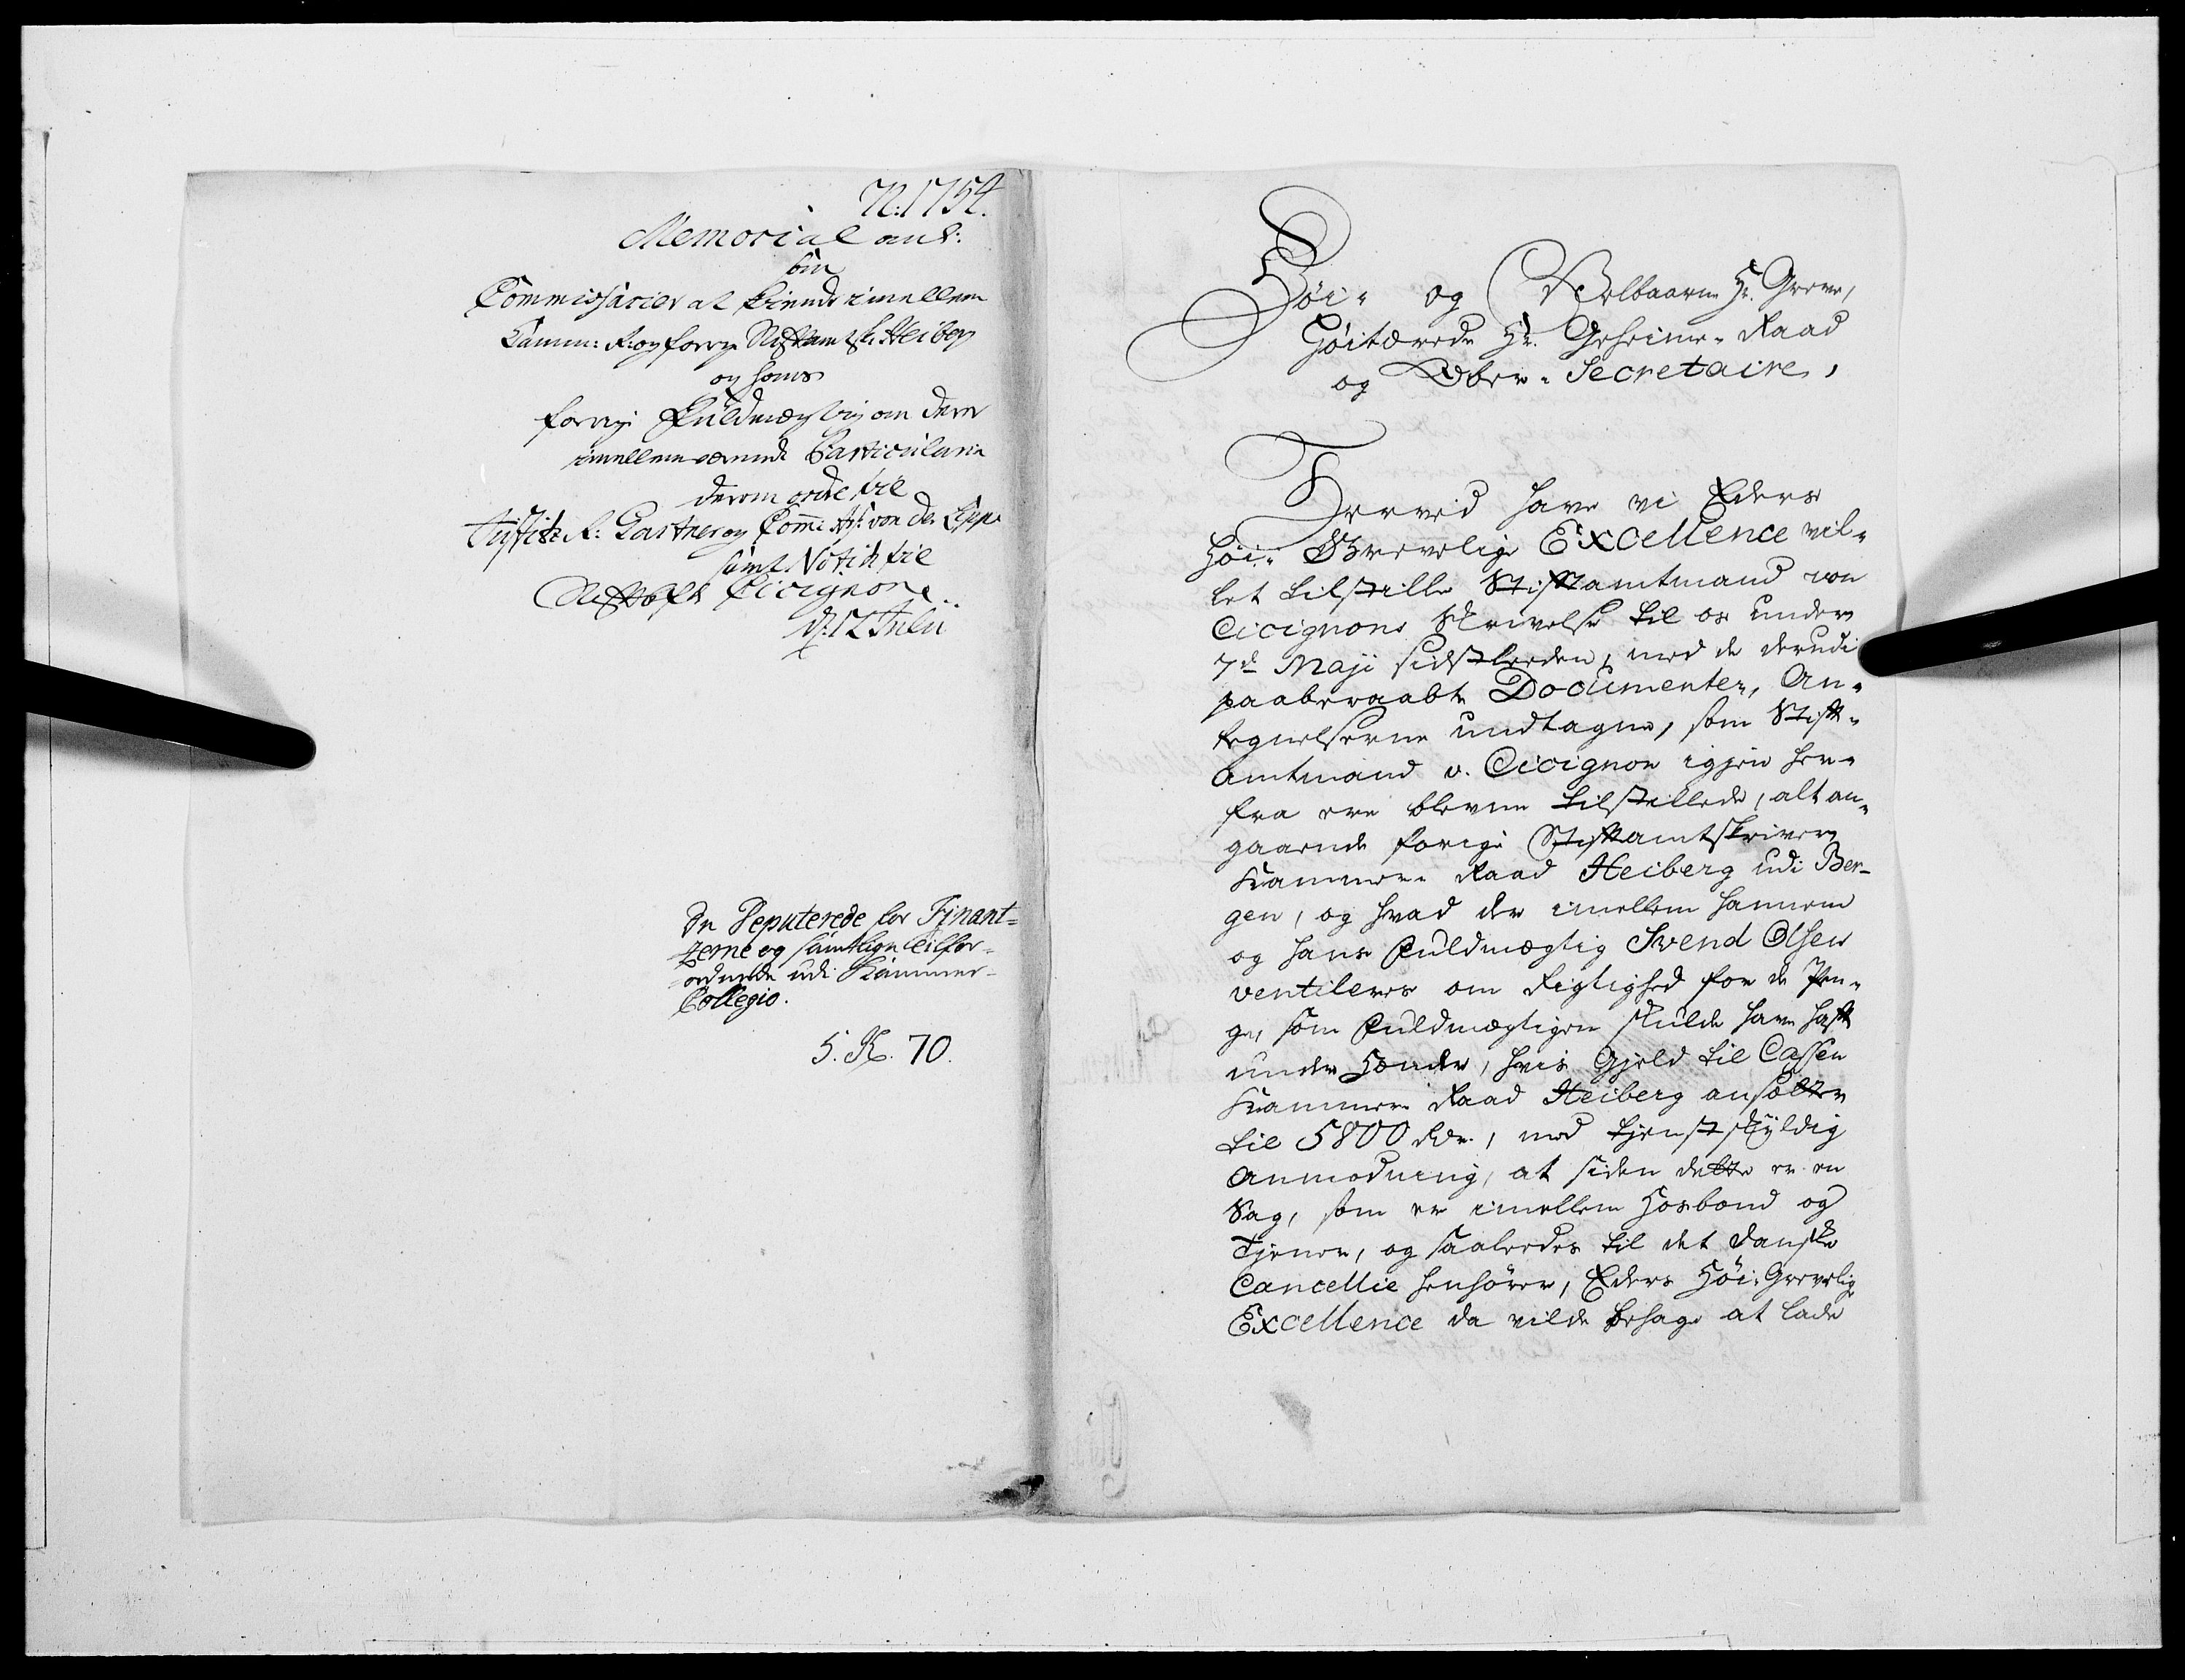 N: 1754.
Memorial ank:
om
Commissarier at kiende imellem
Kamm: R: og forrige Stiftamtsk: Heiberg
og hans
forrige Fuldmægtig om deres
imellemværende Particulair
derom ordre til
Justitz R: Gartner og Comm: Ass: von der Lippe
samt Notits til
Stiftbefh Cicignon
d: 12 Julii
De Deputerede for Finant-
zerne og samtlige tilfor-
ordnede udi Kammer-
Collegio.
5. K. 70.
Høi- og Velbaarne Hr. Greve,
Høitærede Hr. Geheime-Raad
og Ober-Secretaire,
Herved have vi Eders
Høi-Grevelige Excellence vil-
let tilstille Stiftamtmand von
Cicignons Skrivelse til os under
7de Maji sidstleeden, med de derudi
paaberaabte Documenter, An-
tegnelserne undtagne, som Stift-
amtmand v. Cicignon igjen her-
fra ere blevne tilstillede, alt an-
gaaende forrige Stiftamtskriver
Kammer-Raad Heiberg udi Ber-
gen, og hvad der imellem hannem
og hans Fuldmægtig Svend Olsen
ventileres om Rigtighed for de Pen-
ge, som Fuldmægtigen skulde have haft
under Hænder, hvis Gjeld til Cassen
Kammer-Raad Heiberg ansætter
til 5800 Rdr., med tjenstskyldig
Anmodning, at siden dette er en
Sag, som er imellem Hosbond og
Tjener, og saaledes til det danske
Cancellie henhører, Eders Høi-Grevelige
Excellence da vilde behage at lade